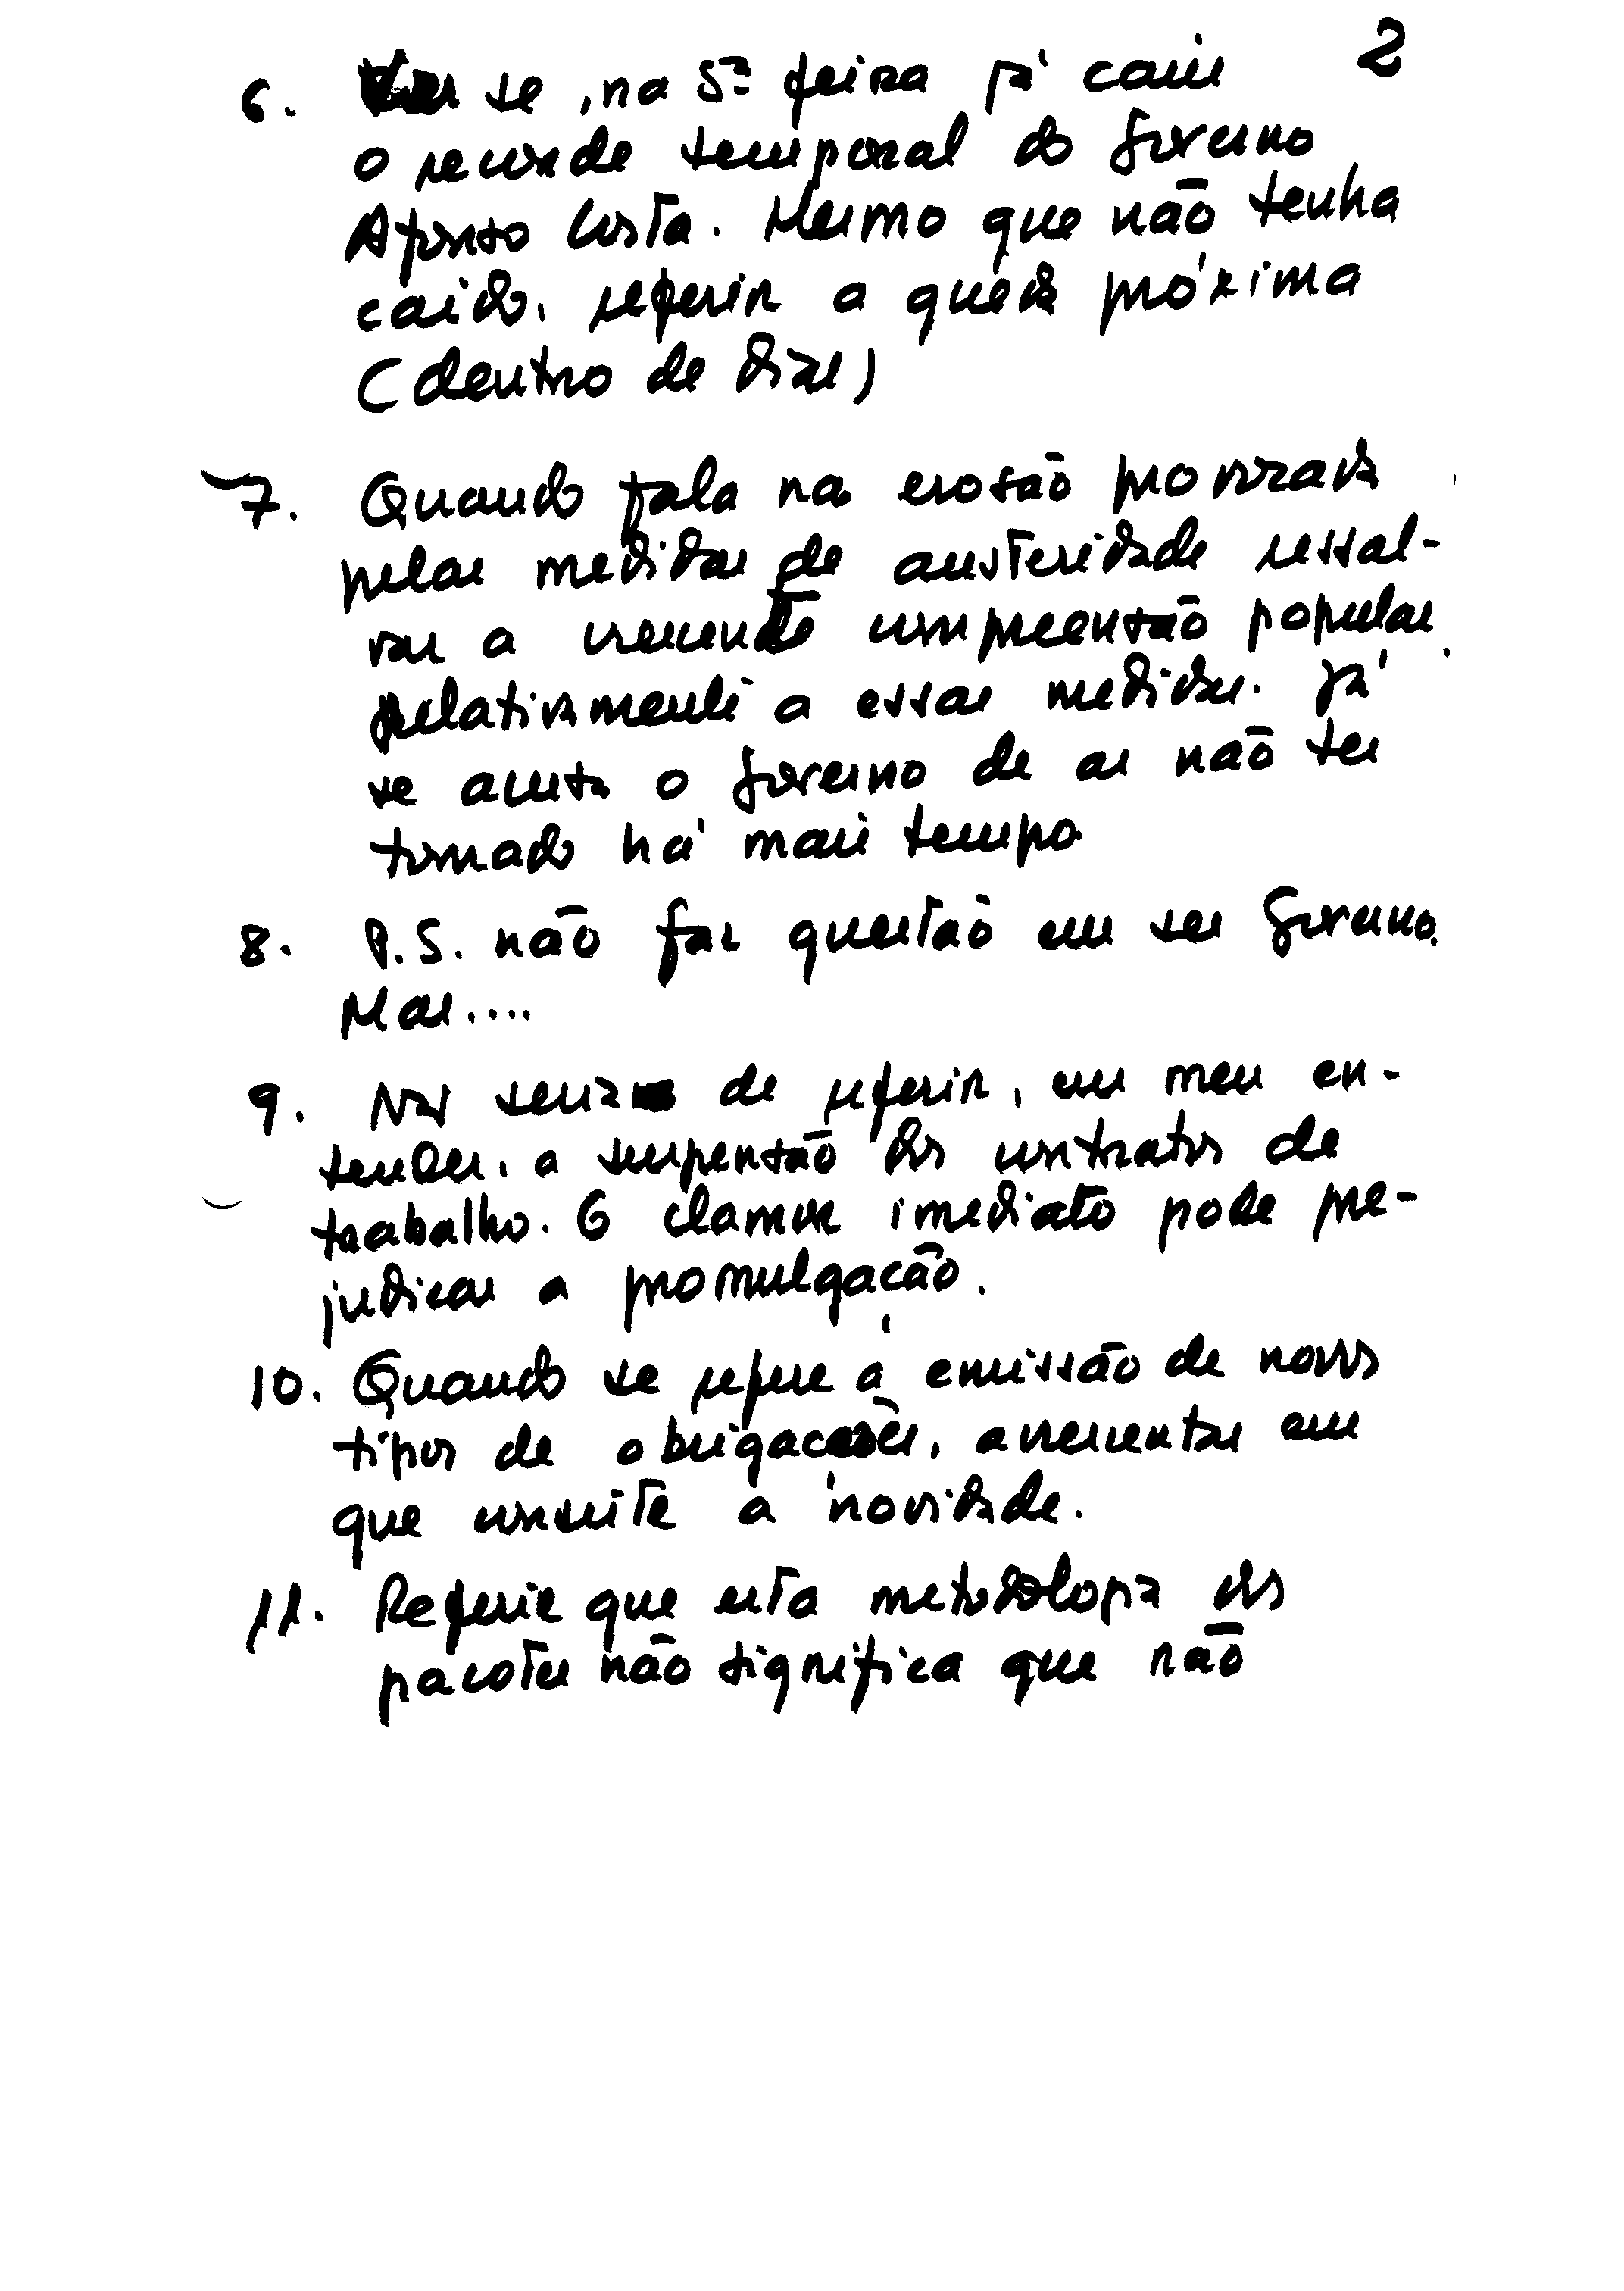 2
6. Ver se, na 5ª feira já caiu
o recorde temporal do Governo
Afonso Costa. Mesmo que não tenha
caido, referir a queda próxima
(dentro de dias)
7. Quando fala na erosão provocada
pelas medidas de austeridade ressal-
var a crescente compreensão popular
relativamente a essas medidas. Já
se acusa o Governo de as não ter
tomado há mais tempo
8. P.S. não faz questão em ser Governo.
Mas....
9. Não seria de referir, em meu en-
tender, a suspensão dos contratos de
trabalho. O clamor imediato pode pre-
judicar a promulgação.
10. Quando se refere à emissão de novos
tipos de obrigações, acrescentar em
que consiste a novidade.
11. Referir que esta metodologia dos
pacotes não significa que não